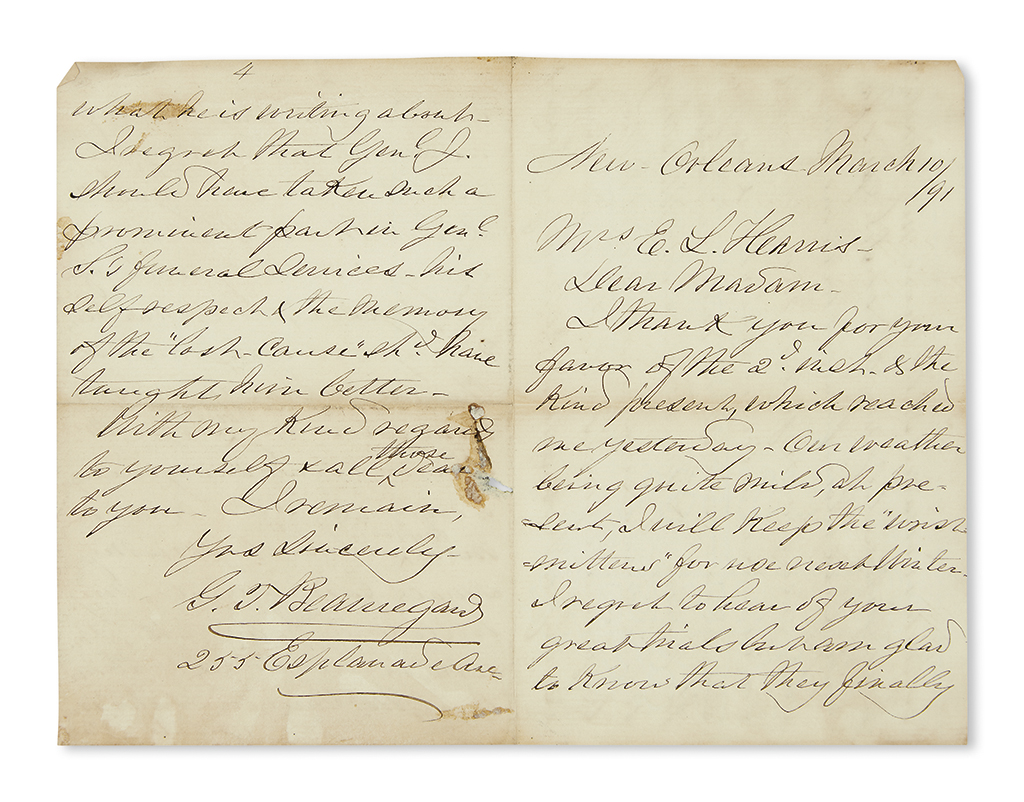 New-Orleans March 10/
/91
Mrs E. L. Hearris-
Dear Madam-
I thank you for your
favor of the 2d. inst. & the
kind present, which reached
me yesterday- Our weather
being quite mild, at pre-
-sent, I will keep the "wrist
-mittens" for use next Winter-
I regret to hear of your
great trials but am glad
to know that they finally
4
what he is writing about-
I regret that Genl. J.
should have taken such a
prominent part in Genl.
S.'s funeral services- his
self respect & the memory
of the "lost-cause" shd. have
taught him better-
With my kind regards
to yourself & all those dear
to you- I remain,
Yrs Sincerely-
G. T. Beauregard
255 Esplanade Ave-